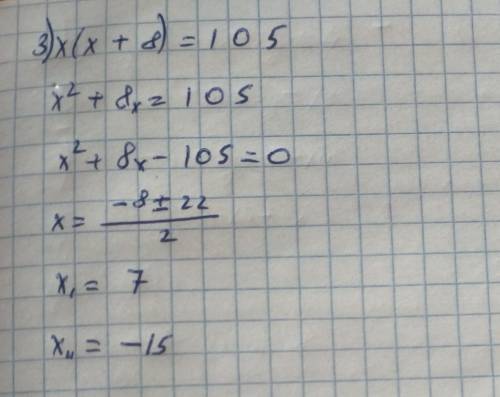 3) x(x + 8) = 105
x² + 8x = 105
x² + 8x - 105 = 0
x = (-8 ± 22) / 2
x₁ = 7
x₁₁ = -15